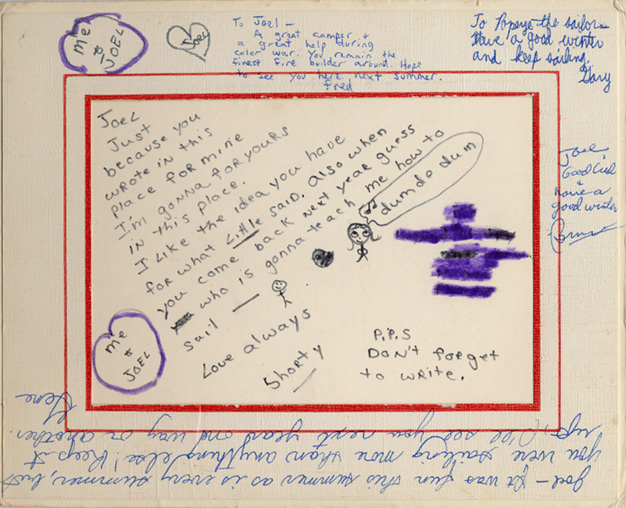 me
&
JOEL
JOEL
To Joel –
A great camper, &
a great help during
color war. You remain the
finest fire builder around. Hope
to see you here next summer.
Fred
To Popeye the sailor
Have a good winter
and keep sailing.
Gary
Joel,
Good Luck
&
have a
good winter
JOEL
Just
because you
wrote in this
place for mine
I'm gonna for yours
in this place.
I like the idea you have
for what Little said, also when
you come back next year guess
who is gonna teach me how to
sail
dumdedum
Love always
Shorty
P.P.S
DON'T forget
to write.
me
&
JOEL
Joel – It was fun this summer as is every summer, but
you were sailing more than anything else! Keep it
up, I'll see you next year and way or another.
Gene